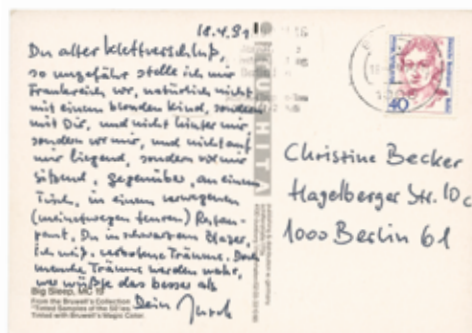 18.4.91
Du alter Klettverschluß,
so ungefähr stelle ich mir
Frankreich vor, natürlich nicht
mit einem blonden Kind, sondern
mit Dir, und nicht hinter mir
sondern vor mir, und nicht auf
mir liegend, sondern vor mir
sitzend, gegenüber, an einem
Tisch, in einem verwegenen
(meinetwegen teuren) Restau-
rant. Du in schwarzem Blazer,
ich weiß, verbotene Träume. Doch
manche Träume werden wahr,
wer wüßte das besser als
Dein
Big Sleep, MC 19
From the Bruwell's Collection
"Tinted Samples of the
Tinted with Bruwell's Magic Color.
40
Christine Becker
Hagelberger Str. 10c
1000 Berlin 61